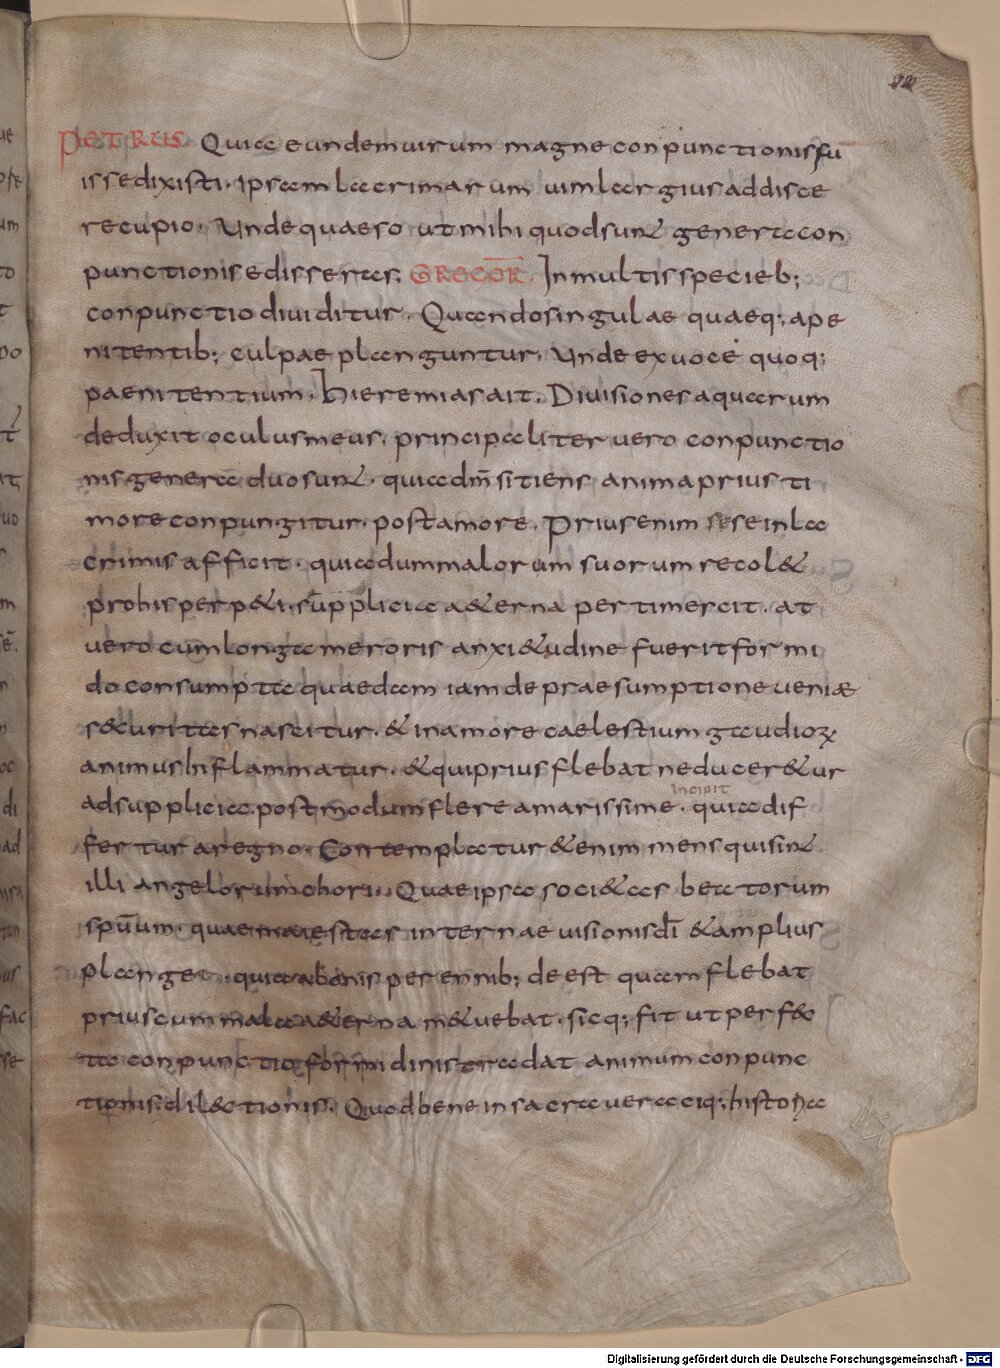 22
PETRUS. Quia eundem uirum magne conpunctionis fu
isse dixisti. ipsam lacrimarum uim largius addisce
re cupio. Unde quaeso ut mihi quod sunt genera con
punctionis edisseras; GREGOR̄. In multis specieb;
conpunctio diuiditur. Quando singulae quaeq; a pe
nitentib; culpae planguntur. Unde ex uoce quoq;
paenitentium. hieremias ait. Diuisiones aquarum
deduxit oculus meus. principaliter uero conpunctio
nis genera duo sunt. quia dm̄ sitiens anima prius ti
more conpungitur. post amore. Prius enim sese in la
crimis afficit. quia dum malorum suorum recol&
pro his perp&i. suppplicia a&erna pertimescit. at
uero cum longa meroris anxi&udine fuerit formi
do consumpta quaedam iam de praesumptione ueniae
s&uritas nascitur. & in amore caelestium gaudioꝝ
animus inflammatur. & qui prius flebat neducer&ur
incipit
ad supplicia. postmodum flere amarissime. quia dif
fertur a regno. Contemplatur &enim mens qui sint
illi angelorum chori. Quae ipsa soci&as beatorum
sp̄uum. quae maiestas internae uisionis dī & amplius
plang&. quia a bonis perennib; deest quam flebat
prius cum mala a&erna m&uebat. sicq; fit ut perf&
ta conpunctio formidinis tradat animum conpunc
tionis dil&tionis. Quod bene in sacra ueraciq; historia
Digitalisierung gefördert durch die Deutsche Forschungsgemeinschaft - DFG